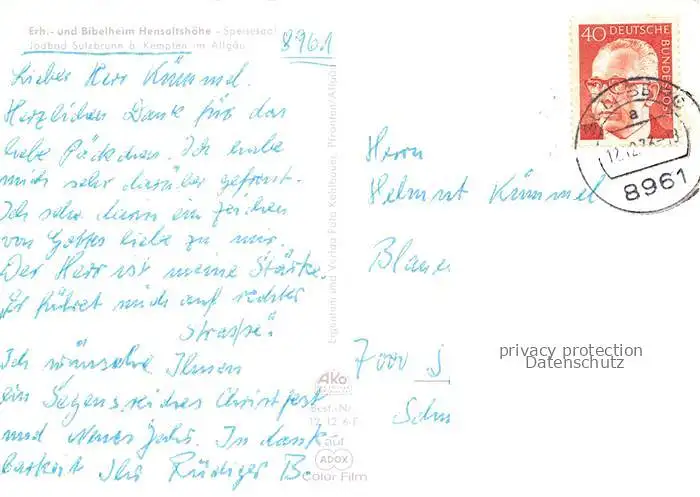 Erh.- und Bibelheim Hensoltshöhe - Speisesaal
Jodbad Sulzbrunn b. Kempten im Allgäu
8961
Lieber Herr Kümmel.
Herzlichen Dank für das
liebe Päckchen. Ich habe
mich sehr darüber gefreut.
Ich sehe darin ein Zeichen
von Gottes Liebe zu mir.
Der Herr ist meine Stärke.
"Er führet mich auf rechter
Strasse".
Ich wünsche Ihnen
ein Segensreiches Christfest
und Neues Jahr. In dank-
barkeit Ihr Rüdiger B.
Eigentum und Verlag Foto Kehlbauer, Pfronten/Allgäu
AKO
Best.-Nr.
12 12 6-F
auf
ADOX
Color Film
40 DEUTSCHE BUNDESPOST
a
12.12.73
8961
Herrn
Helmut Kümmel
7000
privacy protection
Datenschutz